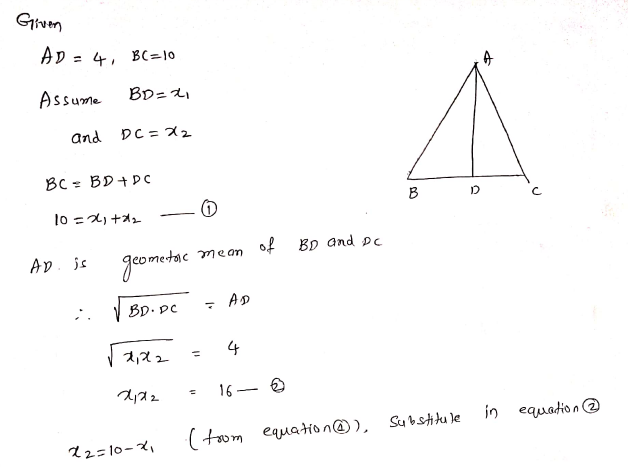 Given
AD = 4, BC=10
Assume BD= x₁
and DC = x₂
BC = BD + DC
10 = x₁+x₂ — ①
A
B D C
AD. is geometric mean of BD and DC
∴ √BD.DC = AD
√x₁x₂ = 4
x₁x₂ = 16 — ②
x₂=10-x₁ (from equation①), Substitute in equation②